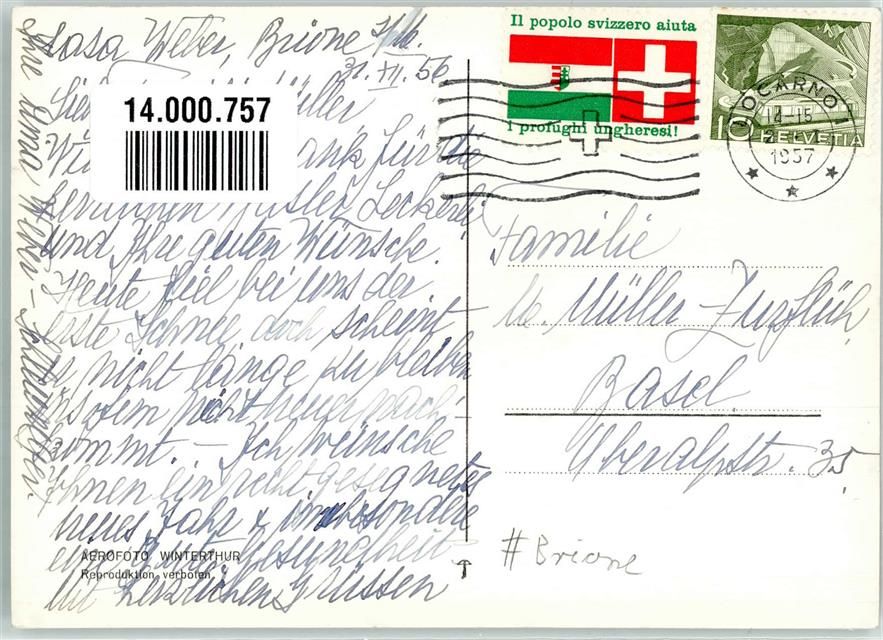 Casa Weber, Brione s/M.
31.XII.56
14.000.757
Müller
für die
Basler Leckerli
und Ihre guten Wünsche.
Heute fiel bei uns der
erste Schnee, doch scheint
er nicht lange zu bleiben
sofern nicht neuer nach-
kommt. – Ich wünsche
Ihnen ein recht gesegnetes
neues Jahr & insbesondere
eine gute Gesundheit
Mit herzlichen Grüssen
Ihre
AEROFOTO WINTERTHUR
Reproduktion verboten
Il popolo svizzero aiuta
I profughi ungheresi!
10
HELVETIA
LOCARNO 1
14-15
1957
Familie
Müller-Zurflüh
Basel
Oberalpstr. 35
#Brione